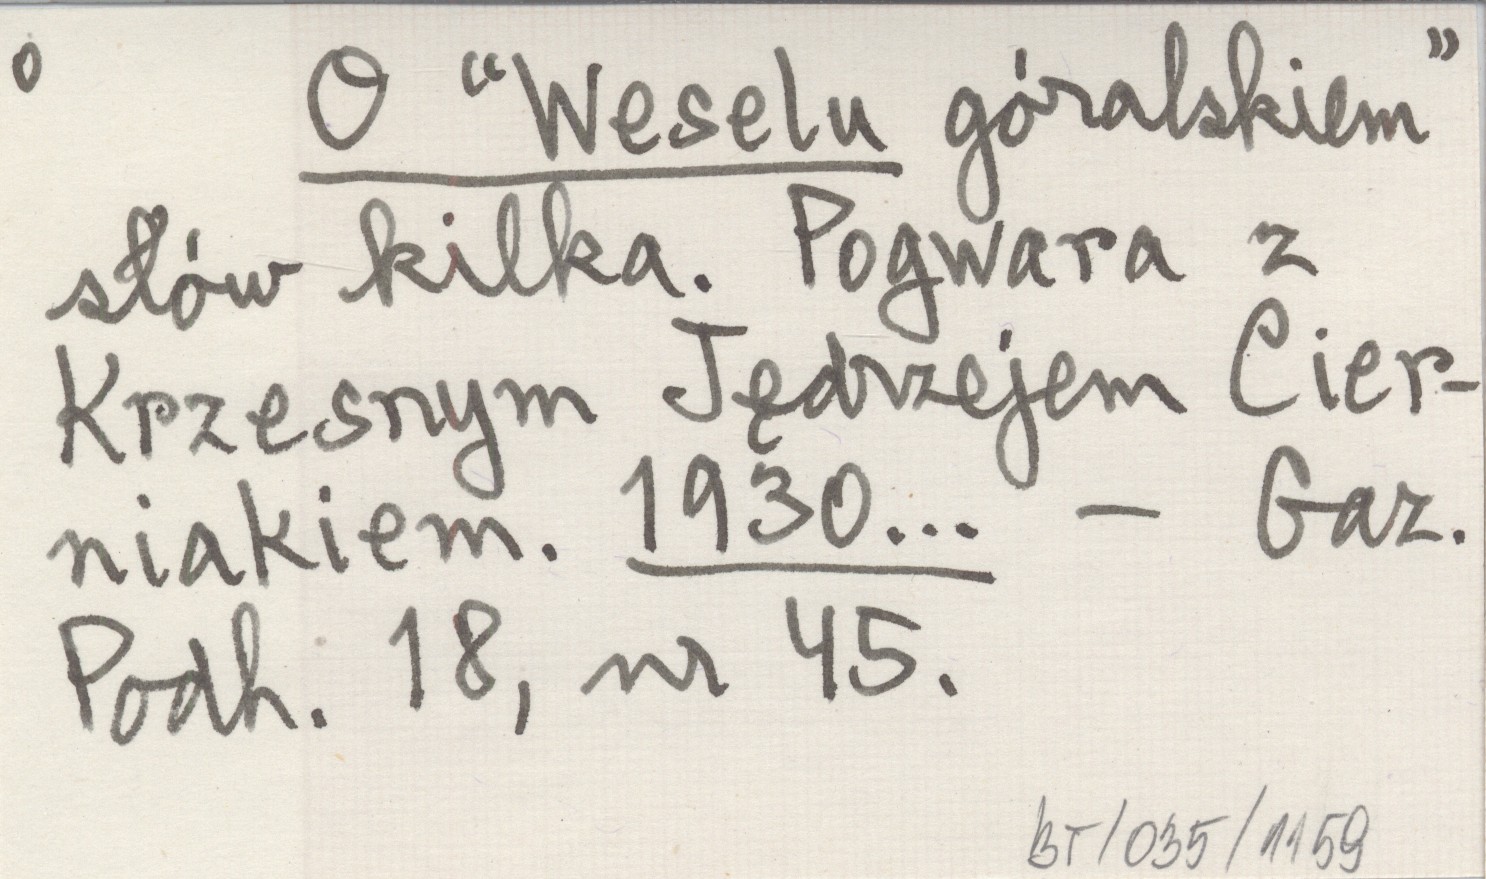 o O “Weselu góralskiem”
słów kilka. Pogwara z
Krzesnym Jędrzejem Cier-
niakiem. 1930... – Gaz.
Podh. 18, nr 45.
BT/035/1159